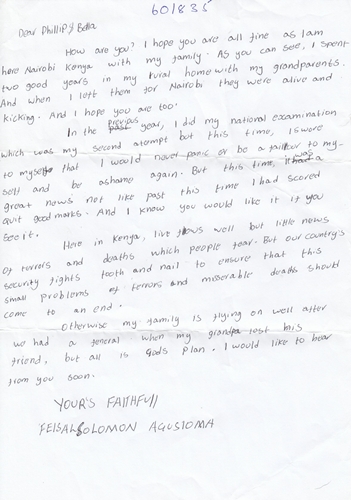 601835
Dear Phillip & Bella
How are you? I hope you are all fine as I am
here Nairobi Kenya with my family. As you can see, I spent
two good years in my rural home with my grandparents.
And when I left them for Nairobi they were alive and
kicking. And I hope you are too.
In the previous year, I did my national examination
which was my second atempt but this time, I swore
to myself that I would never panic or be a failour to my-
self and be ashame again. But this time, it was a
great news not like past this time I had scored
quit good marks. And I know you would like it if you
see it.
Here in Kenya, live flows well but little news
of terrors and deaths which people fear. But our country's
security fights tooth and nail to ensure that this
small problems of terrors and miserable deaths should
come to an end.
Otherwise my family is flying on well after
we had a feneral when my grandpa lost his
friend, but all is gods plan. I would like to hear
from you soon.
YOUR'S FAITHFULL
FEISAL SOLOMON AGUSIOMA